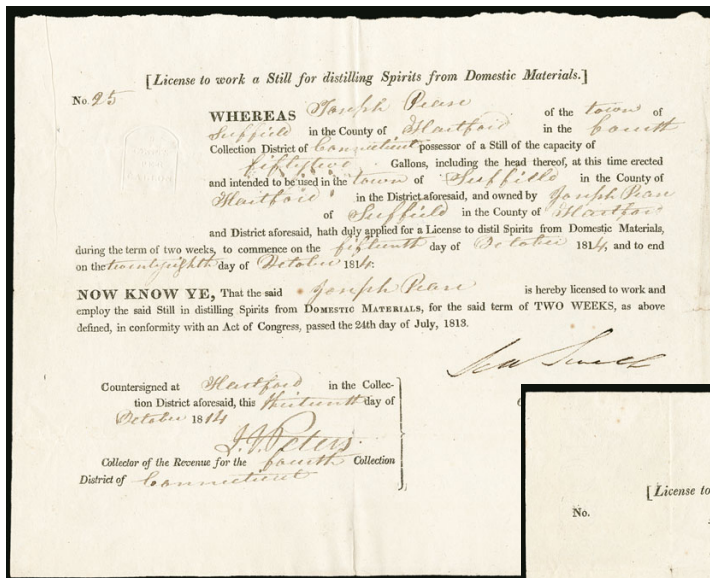 [License to work a Still for distilling Spirits from Domestic Materials.]
No. 25
WHEREAS Joseph Pease of the town of
Suffield in the County of Hartford in the fourth
Collection District of Connecticut possessor of a Still of the capacity of
fiftyfive Gallons, including the head thereof, at this time erected
and intended to be used in the town of Suffield in the County of
Hartford in the District aforesaid, and owned by Joseph Pease
of Suffield in the County of Hartford
and District aforesaid, hath duly applied for a License to distil Spirits from Domestic Materials,
during the term of two weeks, to commence on the fifteenth day of October 1814, and to end
on the twentyeighth day of October 1814.
NOW KNOW YE, That the said Joseph Pease is hereby licensed to work and
employ the said Still in distilling Spirits from DOMESTIC MATERIALS, for the said term of TWO WEEKS, as above
defined, in conformity with an Act of Congress, passed the 24th day of July, 1813.
Countersigned at Hartford in the Collec-
tion District aforesaid, this thirteenth day of
October 1814
J. S. Peters
Collector of the Revenue for the fourth Collection
District of Connecticut
[License to
No.